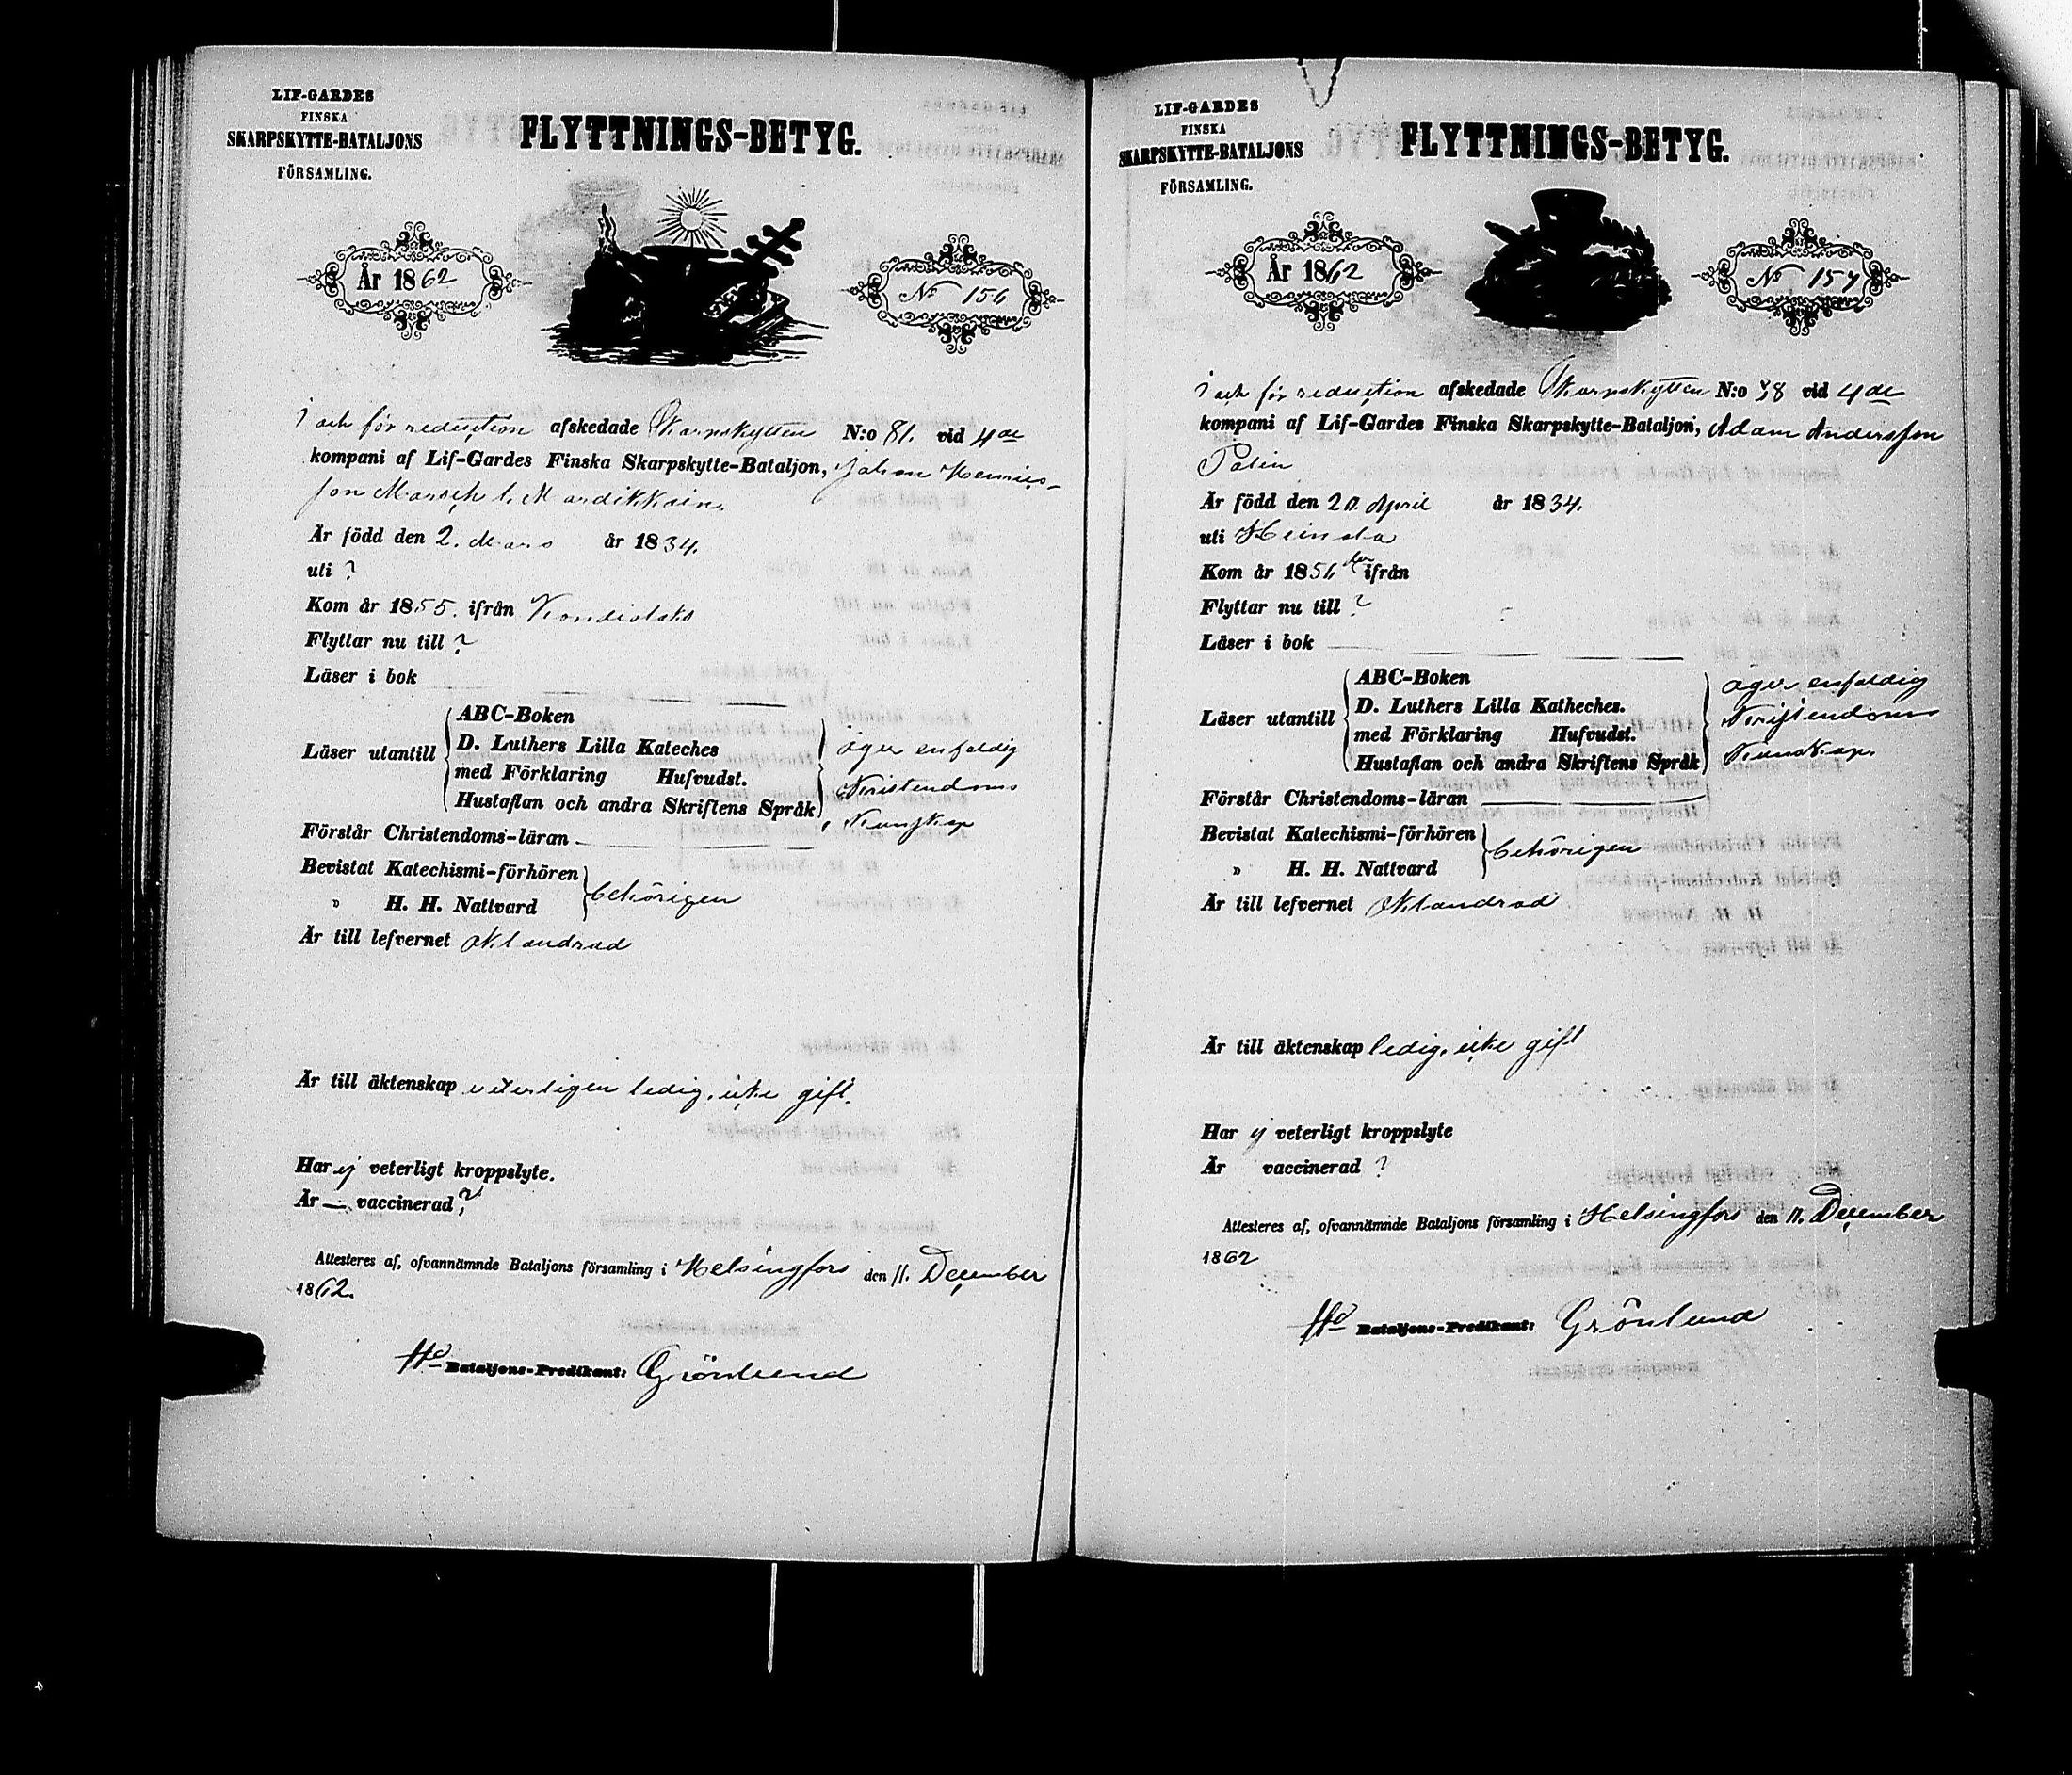 LIF-GARDES
FINSKA
SKARPSKYTTE-BATALJONS
FÖRSAMLING.
FLYTTNINGS-BETYG.
År 1862
No 156
I och för reduction afskedade Skarpskytten N:o 81. vid 4de
kompani af Lif-Gardes Finska Skarpskytte-Bataljon, Johan Henriks-
son Marsch l. Mardikkain.
Är född den 2. Mars år 1834.
uti ?
Kom år 1855. ifrån
Flyttar nu till ?
Läser i bok
Läser utantill
ABC-Boken
D. Luthers Lilla Kateches
med Förklaring Hufvudst.
Hustaflan och andra Skriftens Språk
äger enfaldig
Kristendoms
Kunskap
Förstår Christendoms-läran
Bevistat Katechismi-förhören
" H. H. Nattvard
behörigen
Är till lefvernet oklandrad
Är till äktenskap veterligen ledig, icke gift.
Har ej veterligt kroppslyte.
Är — vaccinerad ?
Attesteres af, ofvannämnde Bataljons församling i Helsingfors den 11. December
1862.
Bataljons-Predikant: Grönlund
LIF-GARDES
FINSKA
SKARPSKYTTE-BATALJONS
FÖRSAMLING.
FLYTTNINGS-BETYG.
År 1862
No 157
I och för reduction afskedade Skarpskytten N:o 38 vid 4de
kompani af Lif-Gardes Finska Skarpskytte-Bataljon, Adam Andersson
Palin
Är född den 20. April år 1834.
uti Heinola
Kom år 1856 ifrån
Flyttar nu till ?
Läser i bok
Läser utantill
ABC-Boken
D. Luthers Lilla Katheches.
med Förklaring Hufvudst.
Hustaflan och andra Skriftens Språk
äger enfaldig
Kristendoms
Kunskap.
Förstår Christendoms-läran
Bevistat Katechismi-förhören
" H. H. Nattvard
behörigen
Är till lefvernet oklandrad
Är till äktenskap ledig, icke gift
Har ej veterligt kroppslyte
Är vaccinerad ?
Attesteres af, ofvannämnde Bataljons församling i Helsingfors den 11. December
1862
Bataljons-Predikant: Grönlund